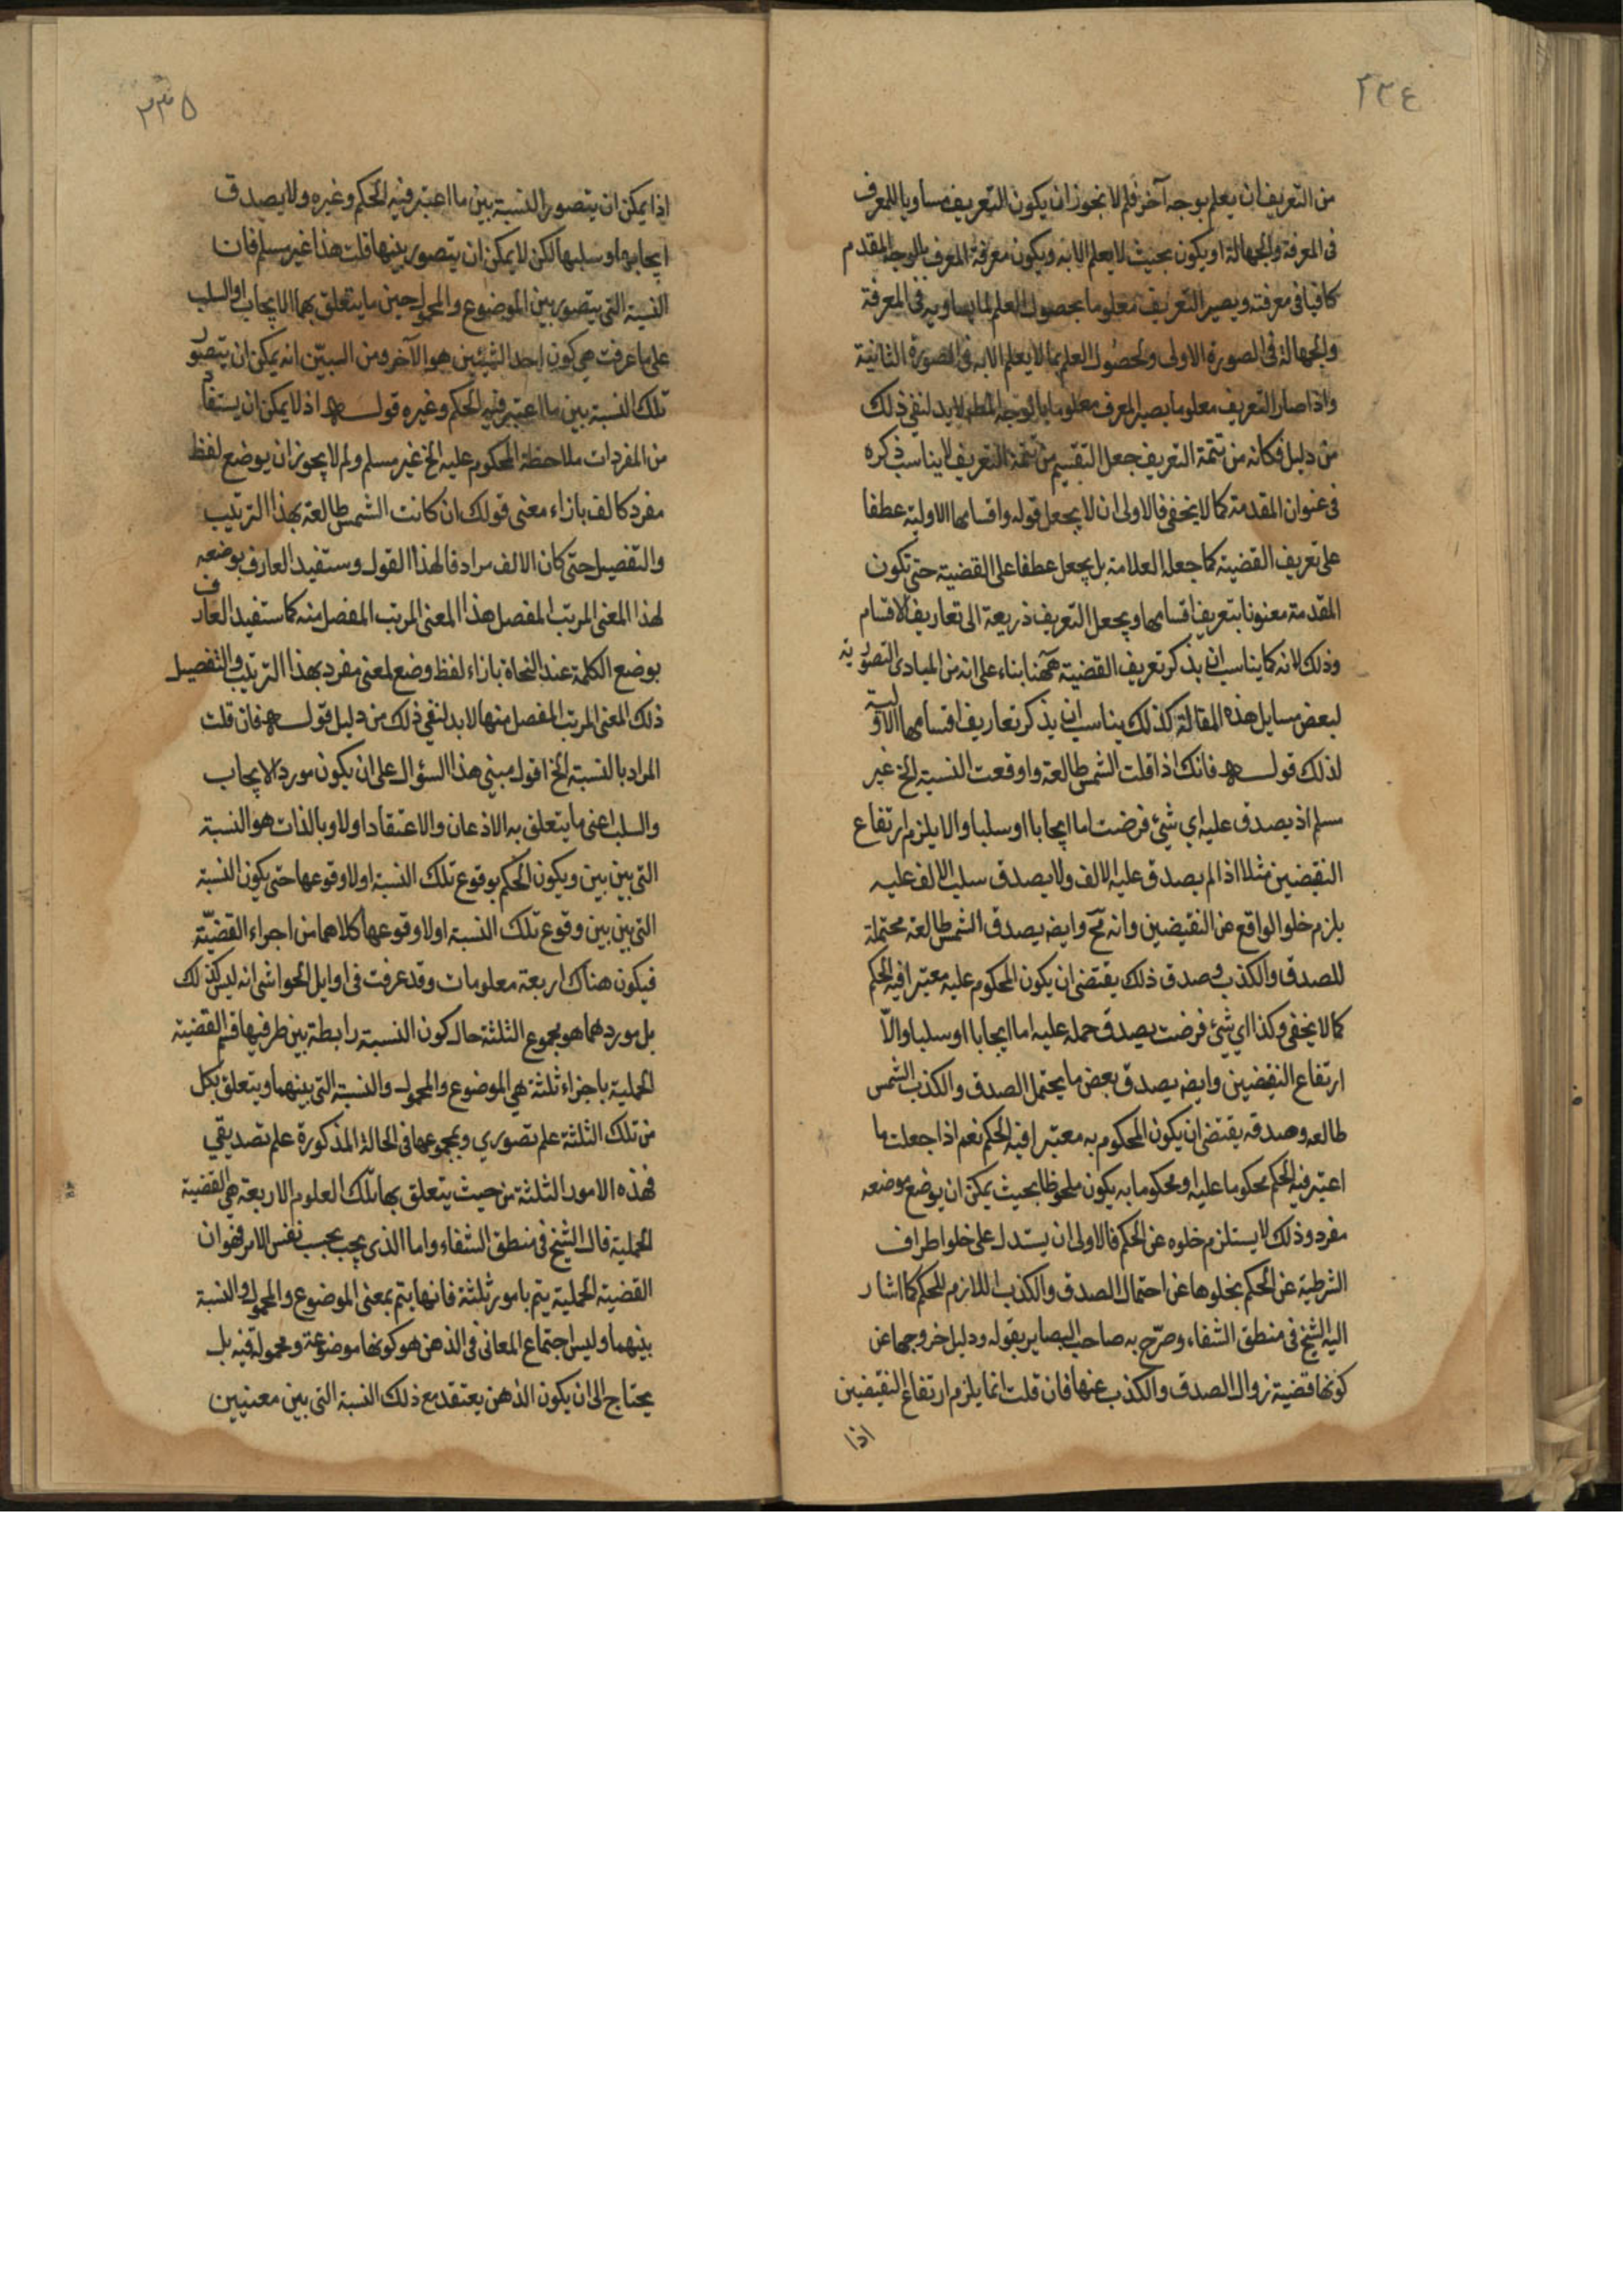 ٢٣٤
من التعريف ان يعلم بوجه آخر فلم لا يجوز ان يكون التعريف مساويا للمعرف
فى المعرفة والجهالة او يكون بحيث لا يعلم الا به ويكون معرفة المعرف بالوجه المقدم
كافيا فى معرفته ويصير التعريف معلوما بحصول العلم لما يساويه فى المعرفة
والجهالة فى الصورة الاولى ولحصول العلم بما لا يعلم الا به فى الصورة الثانية
واذا صار التعريف معلوما يصير المعرف معلوما بالوجه المطلو لا بد لنفي ذلك
من دليل فكانه من تتمة التعريف جعل التقسيم من تتمة التعريف لا يناسب ذكره
فى عنوان المقدمة كما لا يخفى فالاولى ان لا يجعل قوله واقسامها الاولية عطفا
على تعريف القضية كما جعله العلامة بل يجعل عطفا على القضية حتى تكون
المقدمة معنونا بتعريف اقسامها ويجعل التعريف ذريعة الى تعاريف الاقسام
وذلك لانه كما يناسب ان يذكر تعريف القضية ههنا بناء على انه من المبادى التصورية
لبعض مسايل هذه المقالة كذلك يناسب ان يذكر تعاريف اقسامها الاولية
لذلك قولــه فانك اذا قلت الشمس طالعة واوقعت النسبة الخ غير
مسلم اذ يصدق عليه اي شئ فرضت اما ايجابا او سلبا والا يلزم ارتفاع
النقيضين مثلا اذا لم يصدق عليه الالف ولا يصدق سلب الالف عليه
يلزم خلو الواقع عن النقيضين وانه مح وايضه يصدق الشمس طالعة محتملة
للصدق والكذب وصدق ذلك يقتضى ان يكون المحكوم عليه معتبرا فيه الحكم
كما لا يخفى وكذا اي شئ فرضت يصدق حمله عليه اما ايجابا او سلبا والّا
ارتفاع النقيضين وايضه يصدق بعض ما يحتمل الصدق والكذب الشمس
طالعه وصدقه يقتضى ان يكون المحكوم به معتبرا فيه الحكم نعم اذا جعلت ما
اعتبر فيه الحكم محكوما عليه او محكوما به يكون ملحوظا بحيث يمكن ان يوضع موضعه
مفرد وذلك لا يستلزم خلوه عن الحكم فالاولى ان يستدل على خلو اطراف
الشرطية عن الحكم بخلوها عن احتمال الصدق والكذب اللازم للحكم كما اشار
اليه الشيخ فى منطق الشفاء وصرّح به صاحب البصاير بقوله ودليل خروجها عن
كونها قضية زوال الصدق والكذب عنها فان قلت انما يلزم ارتفاع النقيضين
اذا
٢٣٥
اذا يمكن ان يتصور النسبة بين ما اعتبر فيه الحكم وغيره ولا يصدق
ايجابها او سلبها لكن لا يمكن ان يتصور بينها قلت هذا غير مسلم فان
النسبة التى يتصور بين الموضوع والمحمول حين ما يتعلق بهما الايجاب او السلب
على ما عرفت هى كون احد الشيئين هو الآخر ومن البيّن انه يمكن ان يتصور
تلك النسبة بين ما اعتبر فيه الحكم وغيره قولــه اذ لا يمكن ان يستفاد
من المفردات ملاحظة المحكوم عليه الخ غير مسلم ولم لا يجوز ان يوضع لفظ
مفرد كالف بازاء معنى قولك ان كانت الشمس طالعة بهذا الترتيب
والتفصيل حتى كان الالف مرادفا لهذا القول وستفيد العارف بوضعه
لهذا المعنى المرتب المفصل هذا المعنى المرتب المفصل منه كما ستفيد العارف
بوضع الكلمة عند النحاة بازاء لفظ وضع لمعنى مفرد بهذا الترتيب والتفصيل
ذلك المعنى المرتب المفصل منها لا بد لنفي ذلك من دليل قولــه فان قلت
المراد بالنسبة الخ اقول مبنى هذا السؤال على ان يكون مورد الايجاب
والسلب اعنى ما يتعلق به الاذعان والاعتقاد اولا وبالذات هو النسبة
التى بين بين ويكون الحكم بوقوع تلك النسبة او لا وقوعها حتى يكون النسبة
التى بين بين وقوع تلك النسبة او لا وقوعها كلاهما من اجزاء القضيّة
فيكون هناك اربعة معلومات وقد عرفت فى اوايل الحواشى انه ليس كذلك
بل موردهما هو مجموع الثلثة حال كون النسبة رابطة بين طرفيها فتم القضية
الحملية باجزاء ثلثة هي الموضوع والمحمول والنسبة التى بينهما ويتعلق بكل
من تلك الثلثة علم تصوري وبمجموعها فى الحالة المذكورة علم تصديقي
فهذه الامور الثلثة من حيث يتعلق بها تلك العلوم الاربعة هي القضية
الحملية قال الشيخ فى منطق الشفاء واما الذى يجب بحسب نفس الامر فهو ان
القضية الحملية يتم بامور ثلثة فانها يتم بمعنى الموضوع والمحمول والنسبة
بينهما وليس اجتماع المعانى فى الذهن هو كونها موضوعة ومحمولة فيه بل
يحتاج الى ان يكون الذهن يعتقد مع ذلك النسبة التى بين معنيين